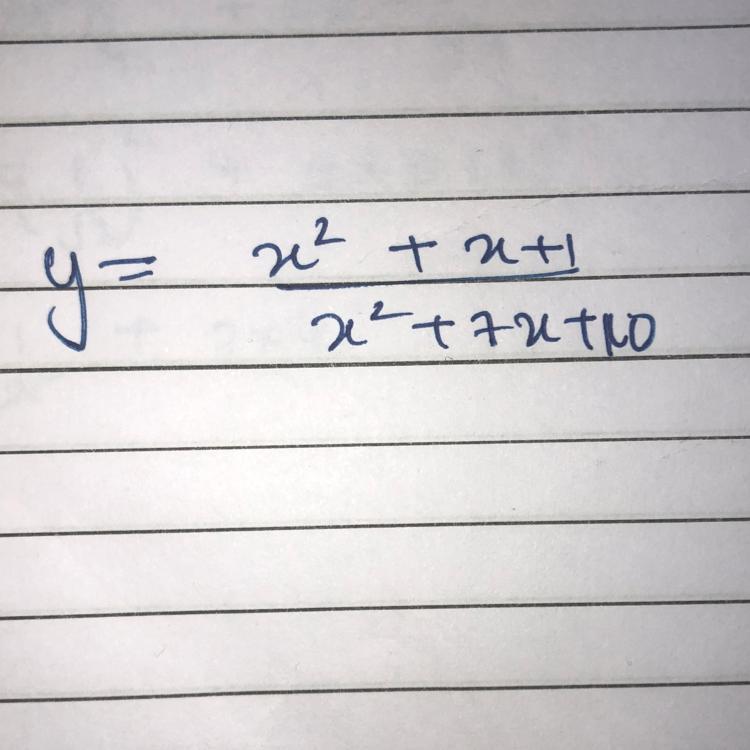 y = x² + x + 1
x² + 7x + 10